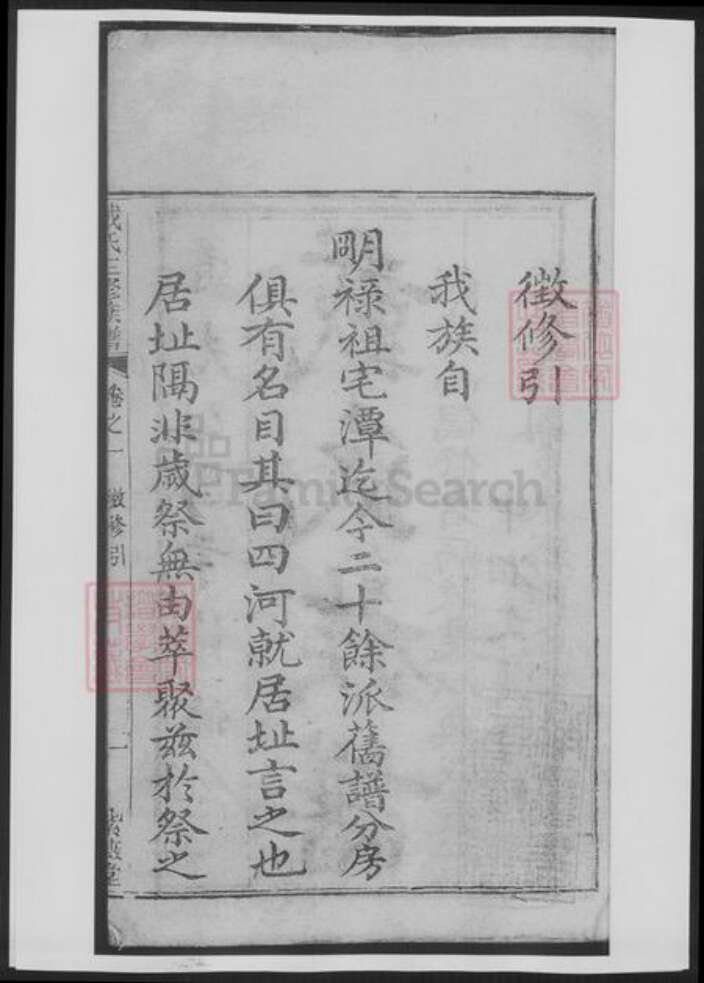 徵修引
我族自
明祿祖宅潭迄今二十餘派舊譜分房
俱有名目其曰四河就居址言之也
居址隔非歲祭無由萃聚茲於祭之
氏三修族譜 卷之一 徵修引 一
FamilySearch